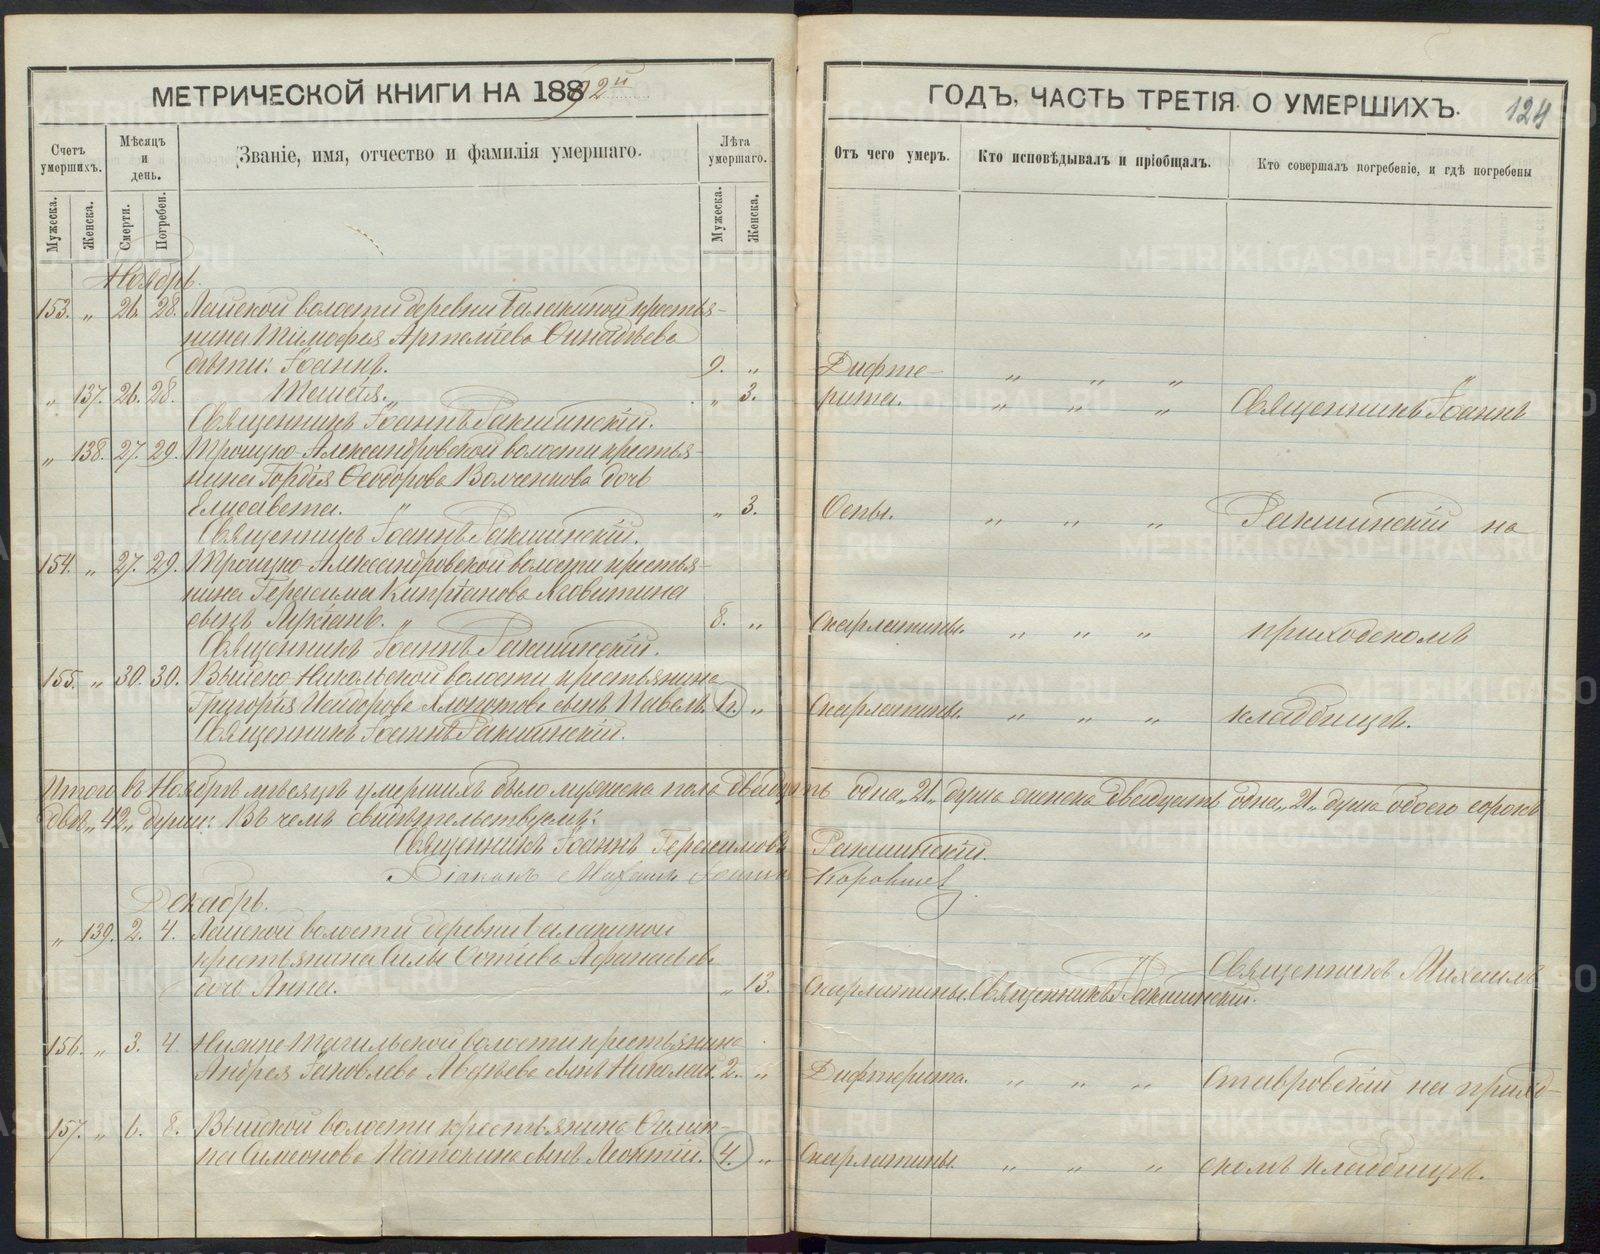 МЕТРИЧЕСКОЙ КНИГИ НА 1892й
ГОДЪ, ЧАСТЬ ТРЕТІЯ О УМЕРШИХЪ.
124
Счетъ умершихъ.
Мѣсяцъ и день.
Званіе, имя, отчество и фамилія умершаго.
Лѣта умершаго.
Отъ чего умеръ.
Кто исповѣдывалъ и пріобщалъ.
Кто совершалъ погребеніе, и гдѣ погребены
Мужеска.
Женска.
Смерти.
Погребен.
Мужеска.
Женска.
Ноябрь.
153. „ 26. 28. Лайской волости деревни Балакиной крестья-
нина Тимофея
дѣти: Іоаннъ. 9. „ Дифте- „ „ „ „
„ 137. 26. 28. „ 3. рита. „ „ „ Священникъ Іоаннъ
Священникъ Іоаннъ Ракшинскій.
„ 138. 27. 29. Троицко-Александровской волости крестья-
нина Гордѣя Ѳеодорова Волченкова дочь
Елисавета. „ „ 3. Оспы. „ „ „ Ракшинскій на
Священникъ Іоаннъ Ракшинскій.
154. „ 27. 29. Троицко-Александровской волости крестья-
нина Герасима Кипріанова
сынъ Лукіанъ. „ 8. „ Скарлатины. „ „ „ приходскомъ
Священникъ Іоаннъ Ракшинскій.
155. „ 30. 30. Выйско-Никольской волости крестьянина
Григорія Исидорова сынъ Павелъ. „ Скарлатины. „ „ „ кладбищѣ.
Священникъ Іоаннъ Ракшинскій.
Итого въ Ноябрѣ мѣсяцѣ умершихъ было мужеска пола двадцать одна „21„ душа женска двадцать одна „21„ душа обоего сорокъ
двѣ „42„ души: Въ чемъ свидѣтельствуемъ:
Священникъ Іоаннъ Герасимовъ Ракшинскій.
Діаконъ Михаилъ Коровинъ
Декабрь.
„ 139. 2. 4. Лайской волости деревни Балакиной
крестьянина Силы Сотіева Аѳанасьева Священникъ Михаилъ
дочь Анна. „ 13. Скарлатины. Священникъ Ракшинскій.
156. „ 3. 4. Нижне-Тагильской волости крестьянина
Андрея Іаковлева Авдѣева сынъ Николай. 2. „ Дифтерита. „ „ „ Ставровскій на приход-
157. „ 6. 8. Выйской волости крестьянина Филип-
па Симеонова сынъ Леонтій. 4. „ Скарлатины. „ „ „ скомъ кладбищѣ.
METRIKI.GASO-URAL.RU